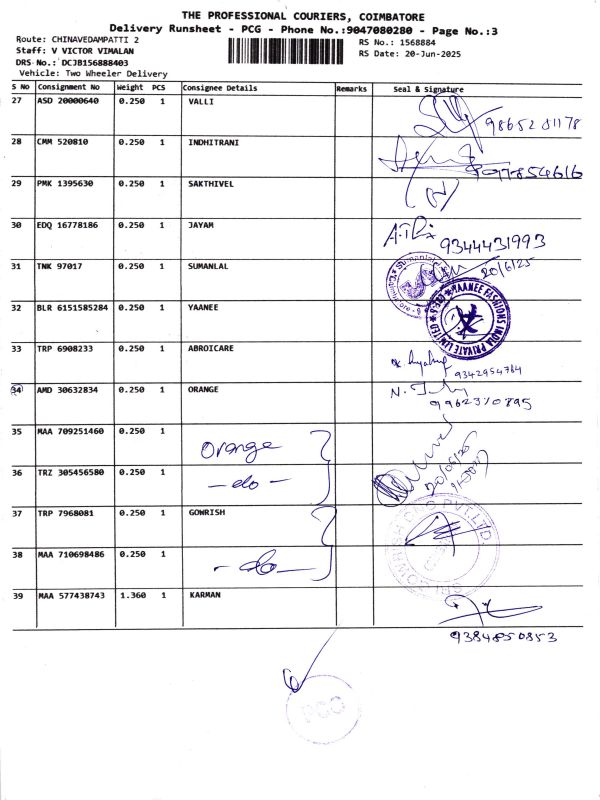 THE PROFESSIONAL COURIERS, COIMBATORE
Delivery Runsheet - PCG - Phone No.:9047080280 - Page No.:3
Route: CHINAVEDAMPATTI 2
RS No.: 1568884
Staff: V VICTOR VIMALAN
RS Date: 20-Jun-2025
DRS No.: DCJB156888403
Vehicle: Two Wheeler Delivery
S No Consignment No Weight PCS Consignee Details Remarks Seal & Signature
27 ASD 20000640 0.250 1 VALLI
9865201178
28 CMM 520810 0.250 1 INDHITRANI
29 PMK 1395630 0.250 1 SAKTHIVEL
30 EDQ 16778186 0.250 1 JAYAM
9344431993
31 TNK 97017 0.250 1 SUMANLAL
20/6/25
32 BLR 6151585284 0.250 1 YAANEE
YAANEE FASHIONS INDIA PRIVATE LIMITED
33 TRP 6908233 0.250 1 ABROICARE
9342954764
34 AMD 30632834 0.250 1 ORANGE
9962310895
35 MAA 709251460 0.250 1 Orange
36 TRZ 305456580 0.250 1 - do -
20/06/25
37 TRP 7968081 0.250 1 GOWRISH
38 MAA 710698486 0.250 1 - do -
39 MAA 577438743 1.360 1 KARMAN
9384850853
PCO